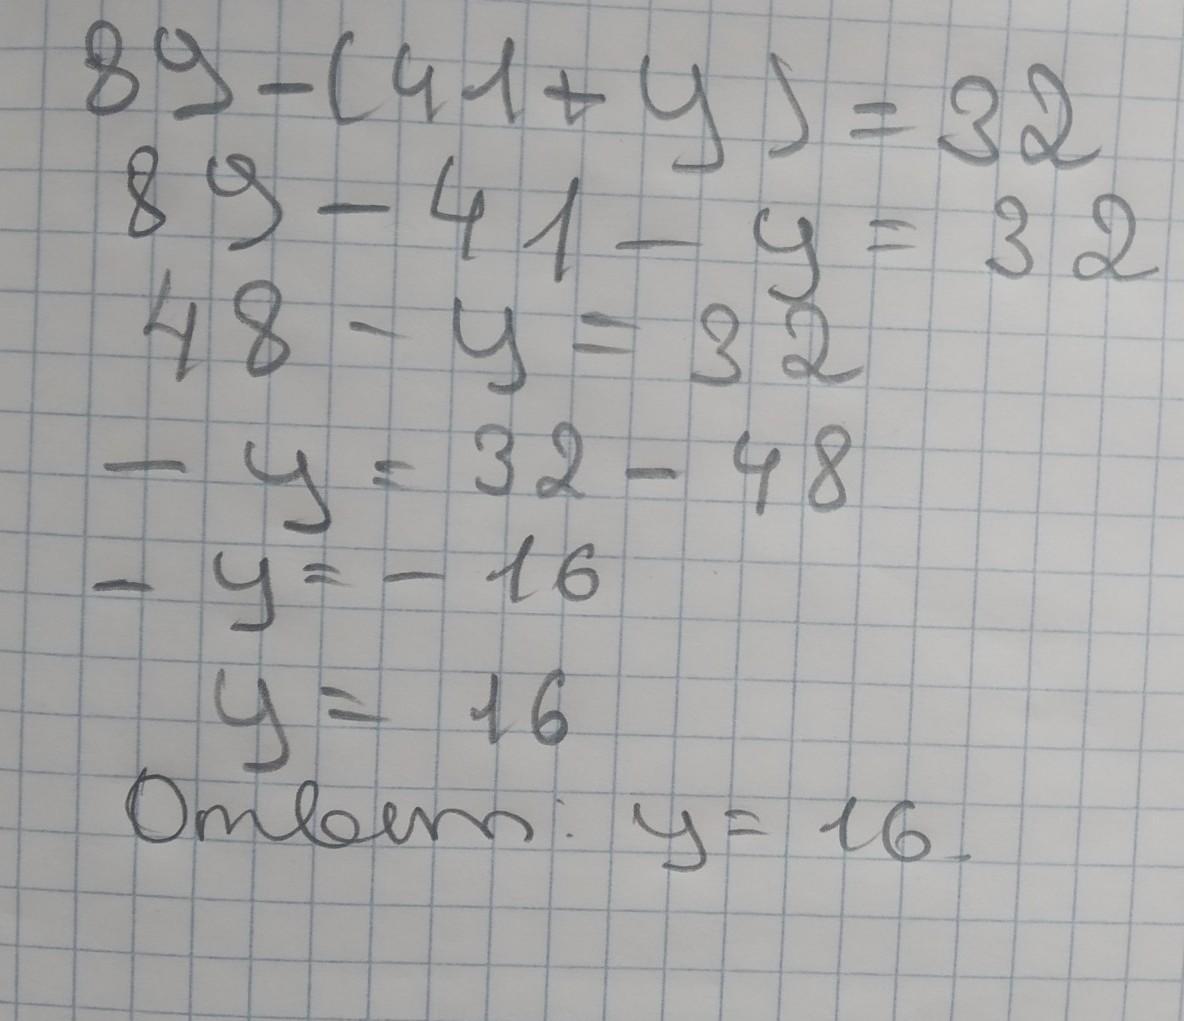 89-(41+y)=32
89-41-y=32
48-y=32
-y=32-48
-y=-16
y=16
Ответ: y=16.